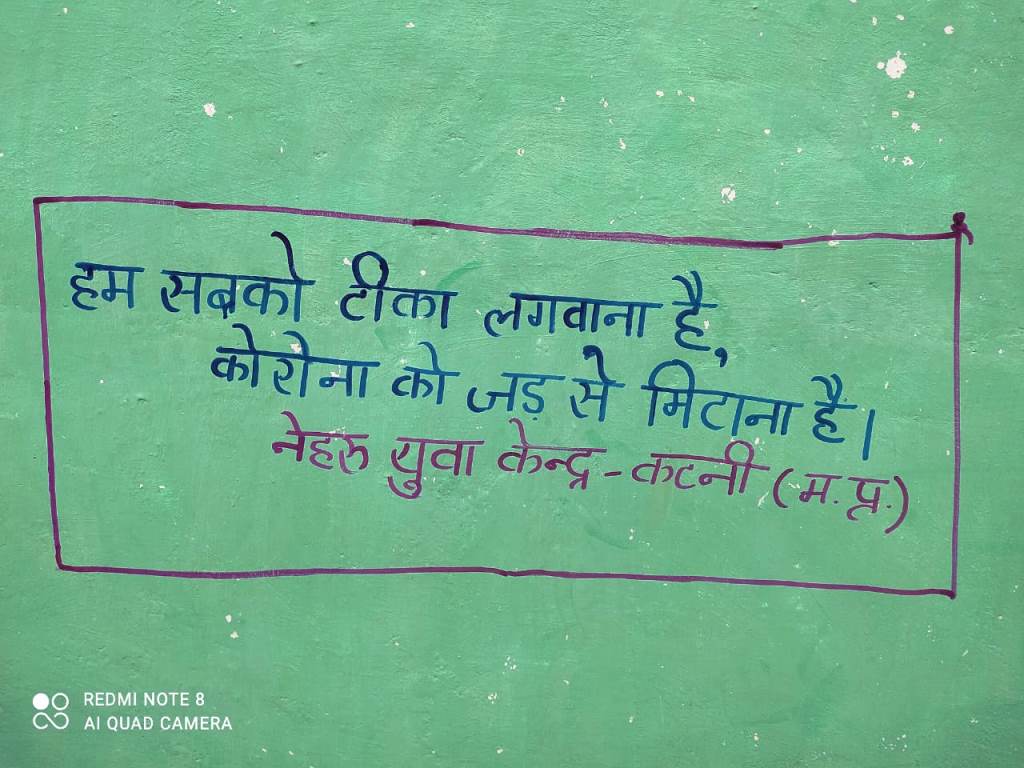 हम सबको टीका लगवाना है,
कोरोना को जड़ से मिटाना है।
नेहरू युवा केन्द्र - कटनी (म.प्र.)
REDMI NOTE 8
AI QUAD CAMERA